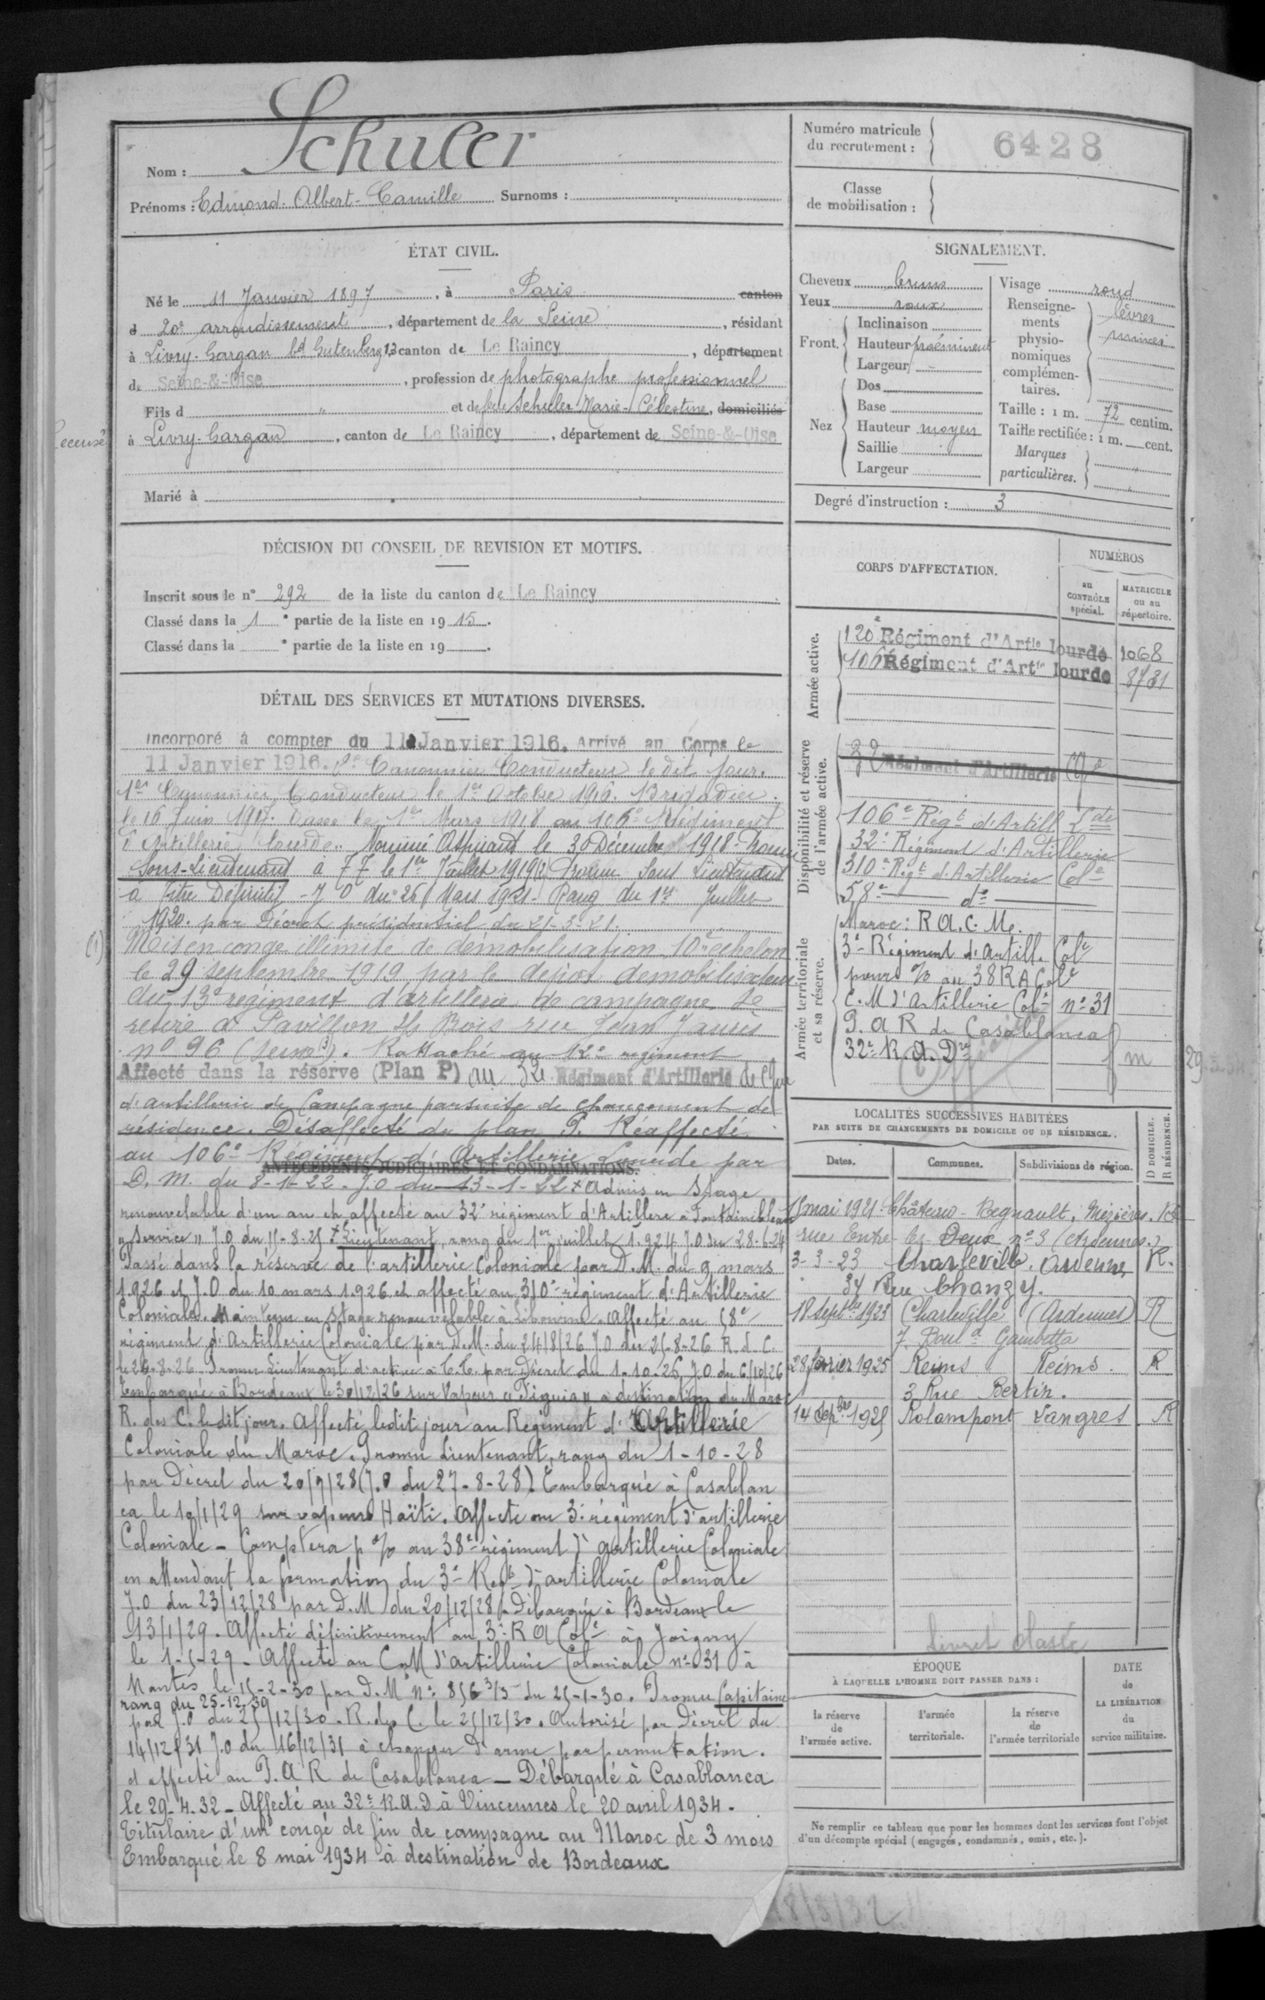 Nom : Schuler
Prénoms : Edmond. Albert-Camille Surnoms :
ÉTAT CIVIL.
Né le 11 Janvier 1897, à Paris canton
d 20e arrondissement, département de la Seine, résidant
à Livry-Gargan bd Gutenberg 13 canton de Le Raincy, département
de Seine-&-Oise, profession de photographe professionnel
Fils d " et de Schuler Marie-Célestine, domiciliés
à Livry-Gargan, canton de Le Raincy, département de Seine-&-Oise
Marié à
DÉCISION DU CONSEIL DE REVISION ET MOTIFS.
Inscrit sous le n° 292 de la liste du canton de Le Raincy
Classé dans la 1e partie de la liste en 1915.
Classé dans la e partie de la liste en 19 .
DÉTAIL DES SERVICES ET MUTATIONS DIVERSES.
Incorporé à compter du 11 Janvier 1916. Arrivé au Corps le
11 Janvier 1916. 2e Canonnier Conducteur le dit jour.
1er Canonnier Conducteur le 1er Octobre 1916. Brigadier
le 16 Juin 1917. Passé le 1er Mars 1918 au 106e Régiment
d'Artillerie lourde. Nommé Aspirant le 30 Décembre 1918. Promu
Sous-Lieutenant à T T le 1er Juillet 1919 Promu Sous Lieutenant
à titre Définitif - J O du 26 Mars 1921 - Rang du 1er Juillet
1920. par Décret présidentiel du 21-3-21.
(1) Mis en congé illimité de démobilisation 10e échelon
le 29 septembre 1919 par le dépôt démobilisateur
du 13e régiment d'artillerie de campagne. Se
retire à Pavillon s/s Bois rue Jean Jaurès
n° 96 (Seine). Rattaché au 12e régiment
Affecté dans la réserve (Plan P) au 32e Régiment d'Artillerie de Cgne
d'artillerie de Campagne par suite de changement de
résidence. Désaffecté du plan P. Réaffecté
au 106e Régiment d'Artillerie Lourde par
ANTÉCÉDENTS JUDICIAIRES ET CONDAMNATIONS.
D. M. du 8-1-22. J.O du 13-1-22 + Admis en Stage
renouvelable d'un an et affecté au 32e régiment d'Artillerie à Fontainebleau
"Service" J.O du 15-8-25 + Lieutenant, rang du 1er juillet 1924 J.O du 28-6-24
Passé dans la réserve de l'artillerie Coloniale par D.M. du 9 mars
1926 et J.O du 10 mars 1926 et affecté au 310e régiment d'Artillerie
Coloniale. Maintenu en Stage renouvelable à Libourne. Affecté au 58e
régiment d'Artillerie Coloniale par D.M. du 24/8/26 J.O du 25-8-26 R.d.C.
le 24-8-26. Promu Lieutenant d'active à T.T. par Décret du 1-10-26 J.O du 6/10/26
Embarqué à Bordeaux le 30/12/26 sur Vapeur "Figuig" à destination du Maroc
R. des C. le dit jour. Affecté le dit jour au Régiment d'Artillerie
Coloniale du Maroc. Promu Lieutenant, rang du 1-10-28
par Décret du 20/7/28 (J.O du 27-8-28). Embarqué à Casablan
ca le 10/1/29 sur vapeur Haïti. Affecté au 3e régiment d'artillerie
Coloniale - Comptera p % au 38e régiment d'artillerie Coloniale
en attendant la formation du 3e Régt d'artillerie Coloniale
J.O du 23/12/28 par D.M du 20/12/28. Débarqué à Bordeaux le
13/1/29. Affecté définitivement au 3e R A Cole à Joigny
le 1-5-29 - Affecté au C.M d'artillerie Coloniale n° 31 à
Nantes le 15-2-30 par D.M n° 856 3/5 du 25-1-30. Promu Capitaine
rang du 25-12-30
par J.O du 25/12/30. R. des C. le 25/12/30. Autorisé par Décret du
14/12/31 J.O du 16/12/31 à changer d'arme par permutation.
et affecté au P.A R de Casablanca - Débarqué à Casablanca
le 29-4-32 - Affecté au 32e R.A.D à Vincennes le 20 avril 1934 -
Titulaire d'un congé de fin de campagne au Maroc de 3 mois
Embarqué le 8 mai 1934 à destination de Bordeaux
Numéro matricule du recrutement : 6428
Classe de mobilisation :
SIGNALEMENT.
Cheveux bruns
Yeux roux
Front. Inclinaison
Hauteur proéminent
Largeur
Nez Dos
Base
Hauteur moyen
Saillie
Largeur
Visage rond
Renseignements physionomiques complémentaires. lèvres minces
Taille : 1 m. 72 centim.
Taille rectifiée : 1 m. cent.
Marques particulières.
Degré d'instruction : 3
CORPS D'AFFECTATION.
NUMÉROS
au CONTRÔLE spécial.
MATRICULE ou au répertoire.
Armée active.
120e Régiment d'Artie lourde 1068
106e Régiment d'Artie lourde 8731
Disponibilité et réserve de l'armée active.
32 Régiment d'Artillerie Cgne
106e Régt d'Artill Lde
32e Régiment d'Artillerie
310e Régt d'Artillerie Cole
58e do
Armée territoriale et sa réserve.
Maroc : R A. C. M.
3e Régiment d'Artill. Cole
pour % au 38 R A Cole
C. M d'Artillerie Cole n° 31
P. A R de Casablanca
32e R. A. Dre
LOCALITÉS SUCCESSIVES HABITÉES
PAR SUITE DE CHANGEMENTS DE DOMICILE OU DE RÉSIDENCE.
Dates. Communes. Subdivisions de région. D DOMICILE. R RÉSIDENCE.
15 mai 1921 Château-Regnault, Mézières. R
rue Entre les Deux n° 3 (Ardennes.)
3-3-23 Charleville. Ardennes R.
34 Rue Chanzy.
18 Septbre 1923 Charleville (Ardennes) R
7. Bould Gambetta
28 février 1925 Reims Reims. R
3 Rue Bertin.
14 Sepbre 1925 Rolampont Langres R
Livret classé
ÉPOQUE
À LAQUELLE L'HOMME DOIT PASSER DANS :
la réserve de l'armée active.
l'armée territoriale.
la réserve de l'armée territoriale
DATE de LA LIBÉRATION du service militaire.
Ne remplir ce tableau que pour les hommes dont les services font l'objet
d'un décompte spécial (engagés, condamnés, omis, etc.).